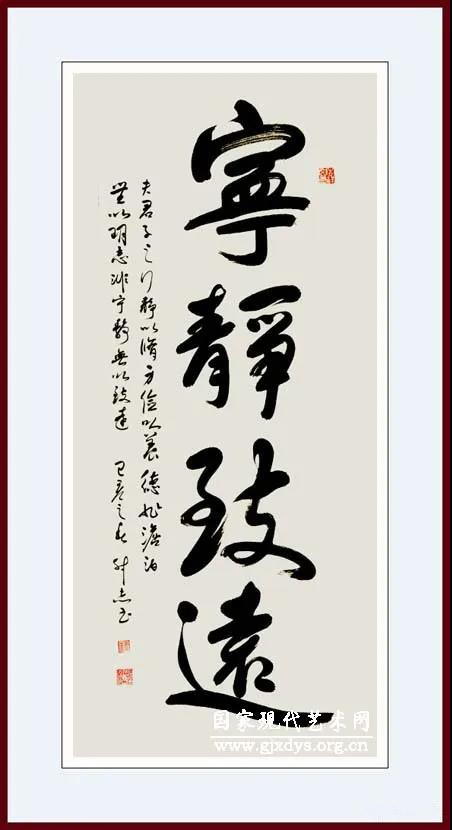 寧靜致遠
夫君子之行靜以脩身儉以養德非澹泊
無以明志非宁靜無以致遠 己亥之
国家现代艺术网
www.gjxdys.org.cn